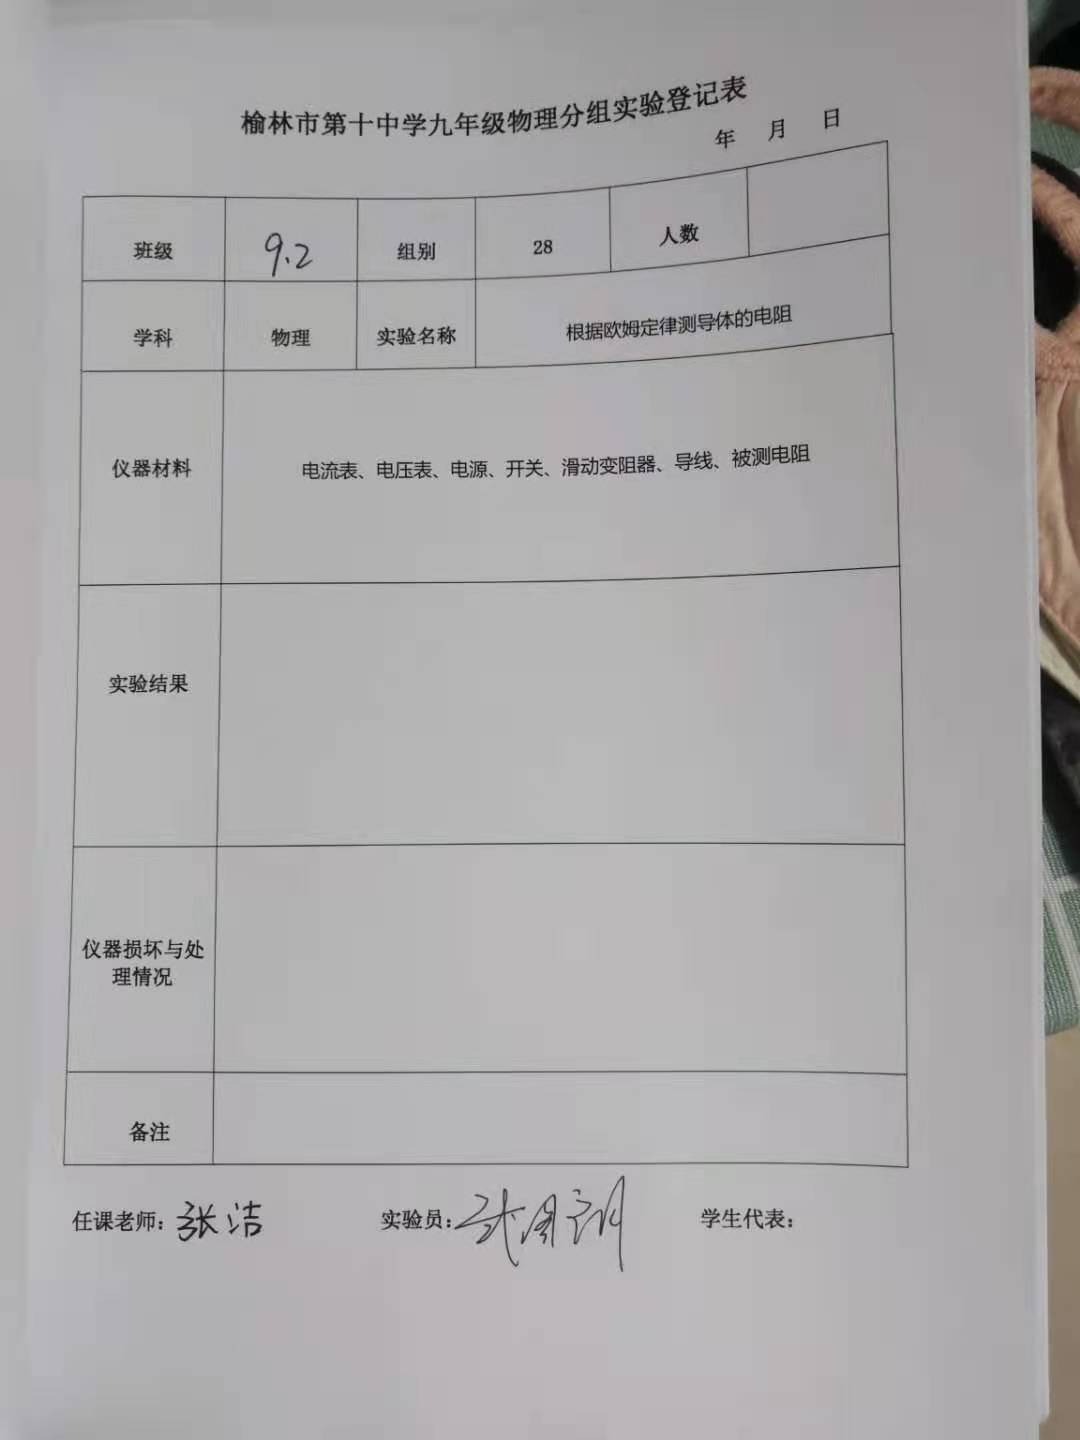 榆林市第十中学九年级物理分组实验登记表
年 月 日
班级 9.2 组别 28 人数
学科 物理 实验名称 根据欧姆定律测导体的电阻
仪器材料 电流表、电压表、电源、开关、滑动变阻器、导线、被测电阻
实验结果
仪器损坏与处
理情况
备注
任课老师：张洁 实验员： 学生代表：